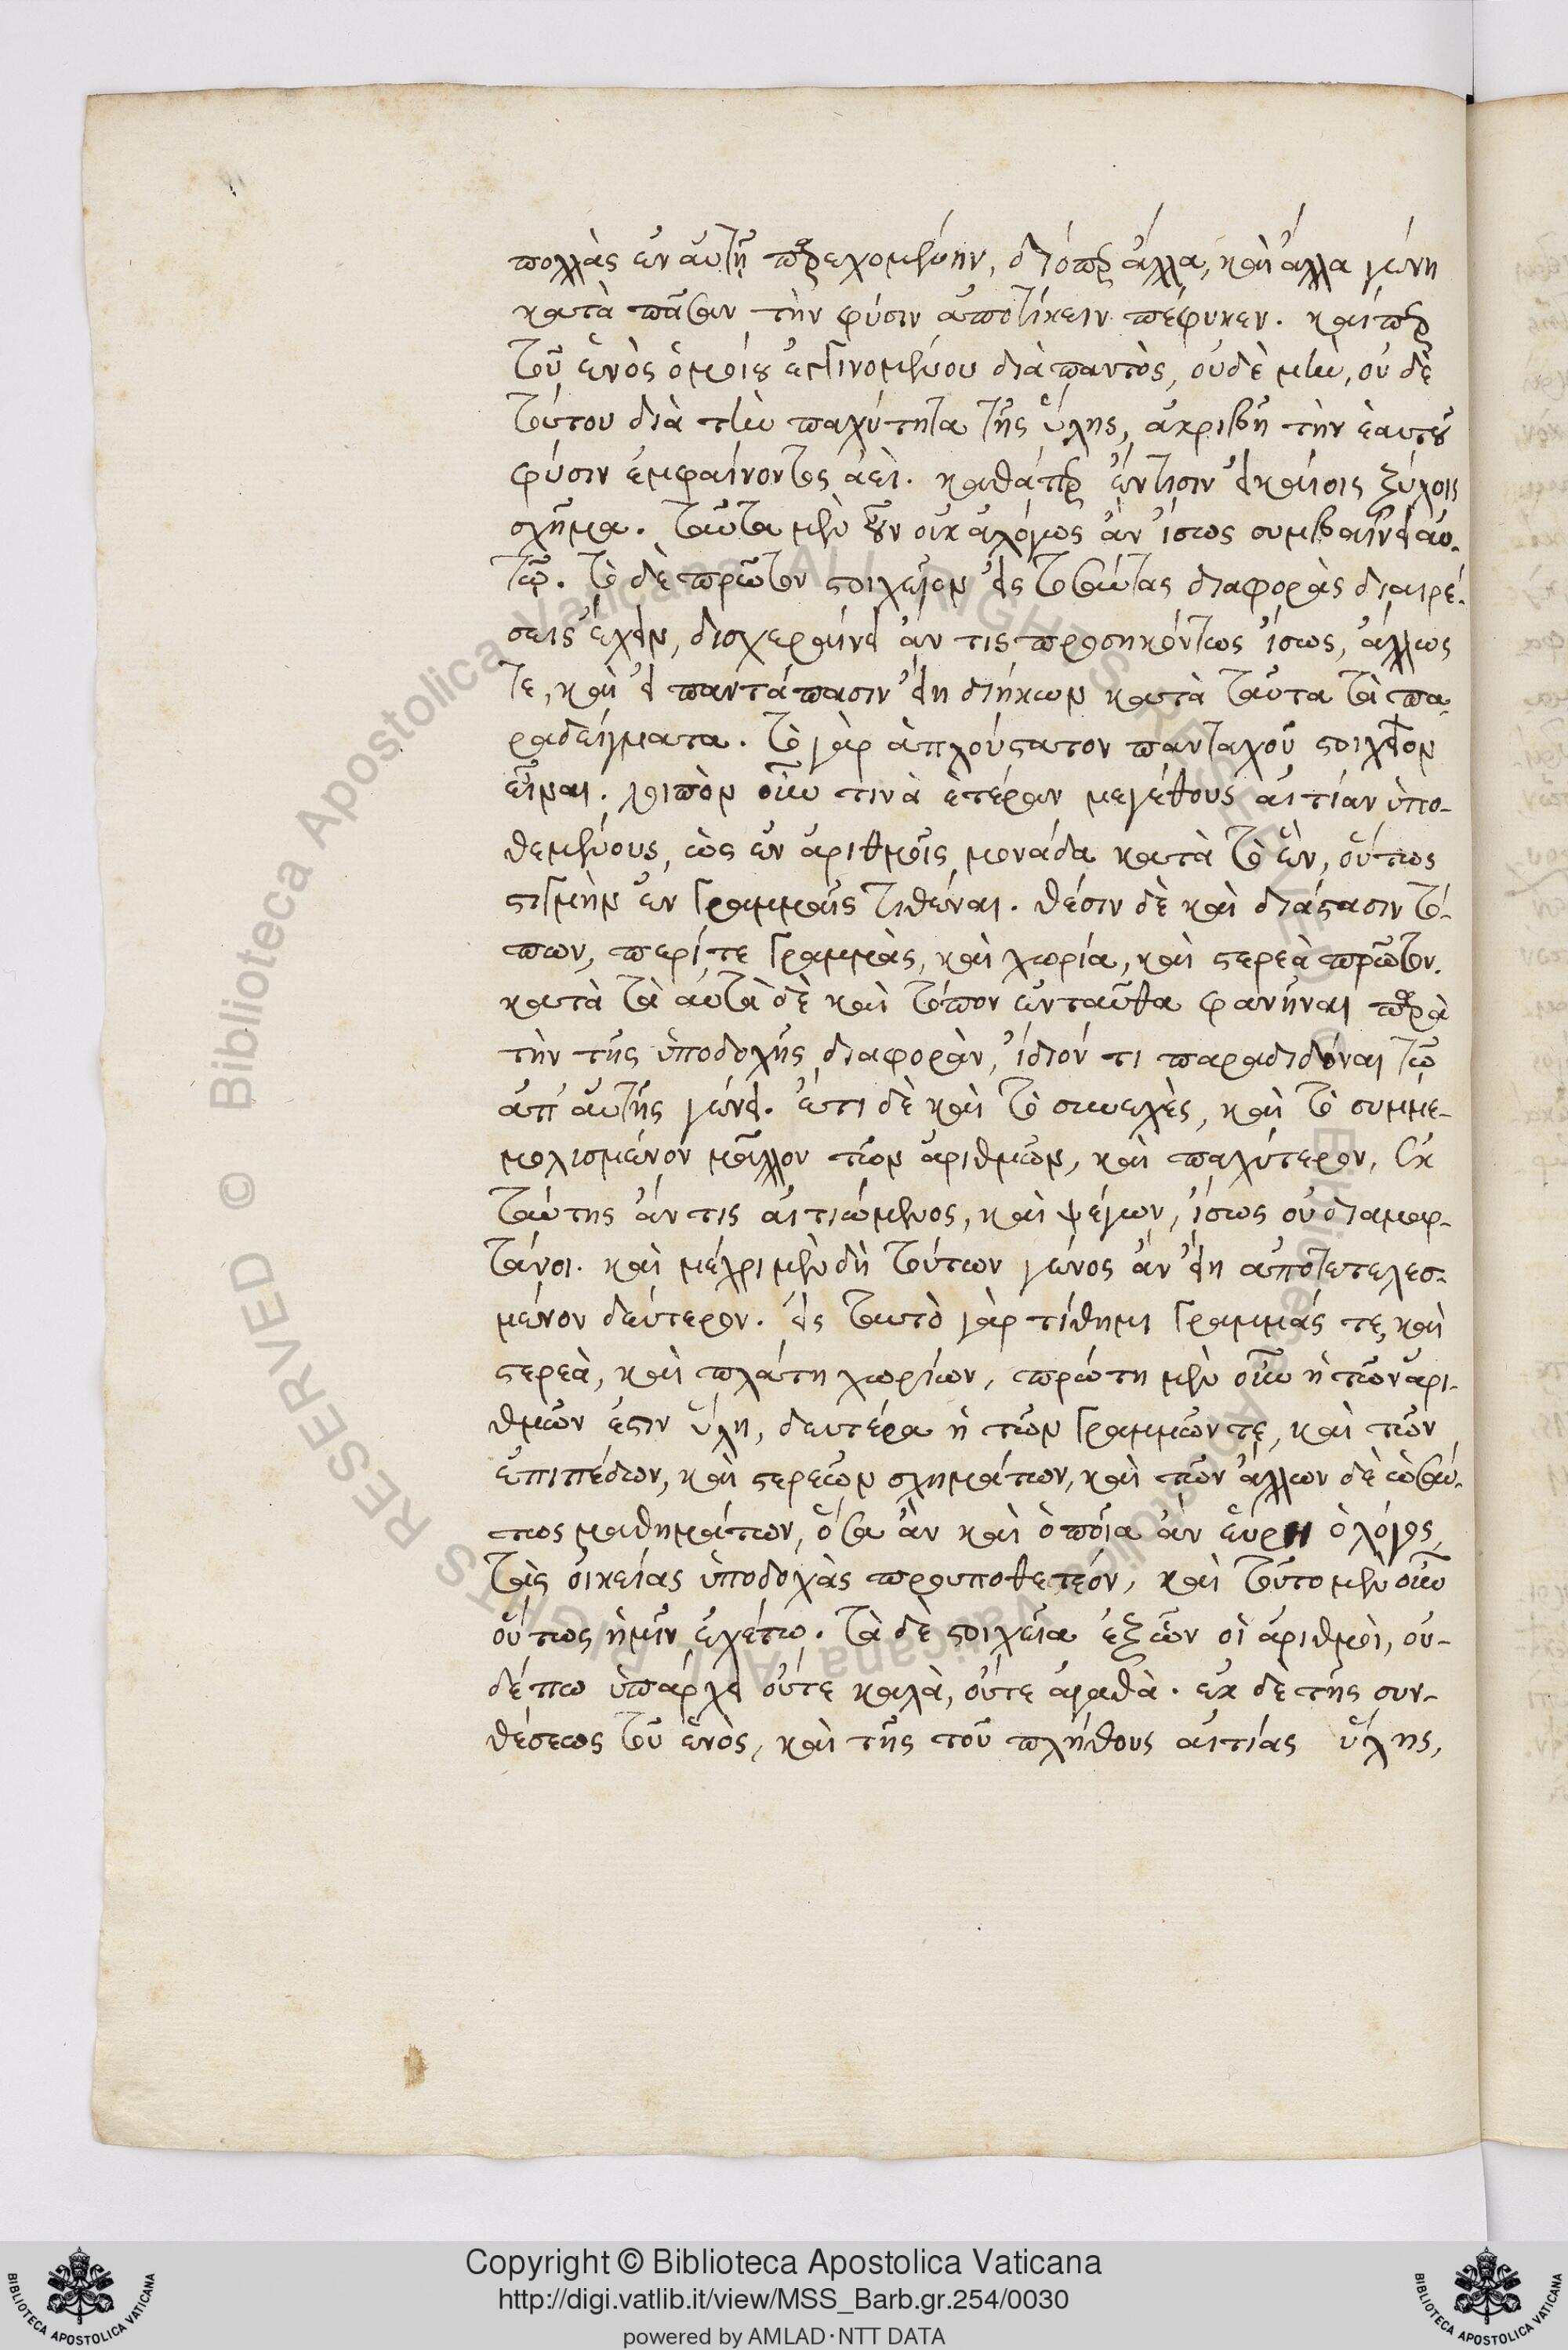 πολλὰς ἐν αὐτῇ παρεχομένην, διόπερ ἄλλα, καὶ ἄλλα γένη
κατὰ πᾶσαν τὴν φύσιν ἀποτίκειν πέφυκεν. καίπερ
τοῦ ἑνὸς ὁμοίου ἐγγινομένου διαπαντὸς, οὐδὲ μὴν, οὐδὲ
τούτου διὰ τὴν παχύτητα τῆς ὕλης, ἀκριβῆ τὴν ἑαυτοῦ
φύσιν ἐμφαίνοντος ἀεὶ. καθάπερ ἔν τισιν εἰκαίοις ξύλοις
σχῆμα. ταῦτα μὲν οὖν οὐκ ἀλόγως ἂν ἴσως συμβαίνει αὐ-
τῷ. τὸ δὲ πρῶτον στοιχεῖον εἰς τοσαύτας διαφορὰς διαιρέ-
σεις ἔχειν, δισχεραίνει ἄν τις προσηκόντως ἴσως, ἄλλως
τε, καὶ εἰ παντάπασιν εἴη διήκων κατὰ ταῦτα τὰ πα-
ραδείγματα. τὸ γὰρ ἁπλούστατον πανταχοῦ στοιχεῖον
εἶναι. λοιπὸν οὖν τινὰ ἑτέραν μεγέθους αἰτίαν ὑπο-
θεμένους, ὡς ἐν ἀριθμοῖς μονάδα κατὰ τὸ ἓν, οὕτως
στιγμὴν ἐν γραμμαῖς τιθέναι. θέσιν δὲ καὶ διάστασιν τό-
πων, περί τε γραμμὰς, καὶ χωρία, καὶ στερεὰ πρῶτον.
κατὰ τὰ αὐτὰ δὲ καὶ τόπον ἐνταῦθα φανῆναι παρὰ
τὴν τῆς ὑποδοχῆς διαφορὰν, ἴδιόν τι παραδιδόναι τῷ
ἀπ' αὐτῆς γένει. ἔτι δὲ καὶ τὸ συνεχὲς, καὶ τὸ συμμε-
μολισμένον μᾶλλον τῶν ἀριθμῶν, καὶ παχύτερον, ἐκ
ταύτης ἄν τις αἰτιώμενος, καὶ ψέγων, ἴσως οὐ διαμαρ-
τάνοι. καὶ μέχρι μὲν δὴ τούτων γένος ἂν εἴη ἀποτετελεσ-
μένον δεύτερον. εἰς ταυτὸ γὰρ τίθημι γραμμάς τε, καὶ
στερεὰ, καὶ πλάτη χωρίων, πρώτη μὲν οὖν ἡ τῶν ἀρι-
θμῶν ἐστιν ὕλη, δευτέρα ἡ τῶν γραμμῶν τε, καὶ τῶν
ἐπιπέδων, καὶ στερεῶν σχημάτων, καὶ τῶν ἄλλων δὲ ὡσαύ-
τως μαθημάτων, ὅσα ἂν καὶ ὁποῖα ἂν εὕρῃ ὁ λόγος,
τὰς οἰκείας ὑποδοχὰς προυποθετεόν, καὶ τοῦτο μὲν οὖν
οὕτως ἡμῖν ἐχέτω. τὰ δὲ στοιχεῖα ἐξ ὧν οἱ ἀριθμοὶ, οὐ-
δέπω ὑπάρχει οὔτε καλὰ, οὔτε ἀγαθὰ. ἐκ δὲ τῆς συν-
θέσεως τοῦ ἑνὸς, καὶ τῆς τοῦ πλήθους αἰτίας ὕλης,
© Biblioteca Apostolica Vaticana ALL RIGHTS RESERVED
© Biblioteca Apostolica Vaticana ALL RIGHTS RESERVED
Copyright © Biblioteca Apostolica Vaticana
http://digi.vatlib.it/view/MSS_Barb.gr.254/0030
powered by AMLAD·NTT DATA
BIBLIOTECA APOSTOLICA VATICANA
BIBLIOTECA APOSTOLICA VATICANA